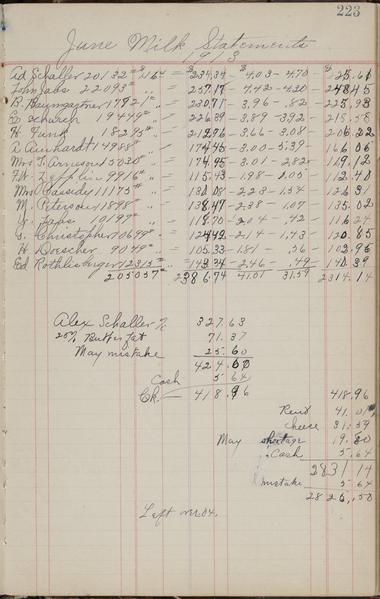 223
June Milk Statements
1913
Ad Schaller 20132# $1.16¼ = $234.34 - $4.03 - 4.70 - $225.61
John Jabs 22093" " = 257.17 4.42 - 4.30 - 248.45
B. Baumgartner 17921" " = 230.71 - 3.96 - .82 - 225.93
19449" " = 226.39 - 3.89 - 3.92 - 218.58
H. Funk 18295" " = 212.96 - 3.66 - 3.08 - 206.22
A Arnhardt 14988" " = 174.45 - 3.00 - 5.39 - 166.06
Mrs. T. Arneson 15030" " = 174.95 - 3.01 - 2.82 - 169.12
F.W. Zepplin 9916" " = 115.43 - 1.98 - 1.05 - 112.40
Mrs Cassidy 11175" " = 130.08 - 2.23 - 1.54 - 126.31
M. Peterson 11898" " = 138.47 - 2.38 - 1.07 - 135.02
Jabs 10197" " = 118.70 - 2.04 - .42 - 116.24
Christopher 10699" " = 124.42 - 2.14 - 1.43 - 120.85
H Doescher 9049" " = 105.33 - 1.81 - .56 - 102.96
Ed. Rothlisberger 12315" = 143.34 - 2.46 - .49 - 140.39
205057" 2386.74 41.01 31.59 2314.14
Alex Schaller 327.63
25% Butter fat 71.37
May mistake 25.60
424.60
Cash 5.64
Ck. 418.96 418.96
41.01
cheese 31.59
May shortage 19.80
Cash 5.64
2831.14
mistake 5.64
2826.50
Left